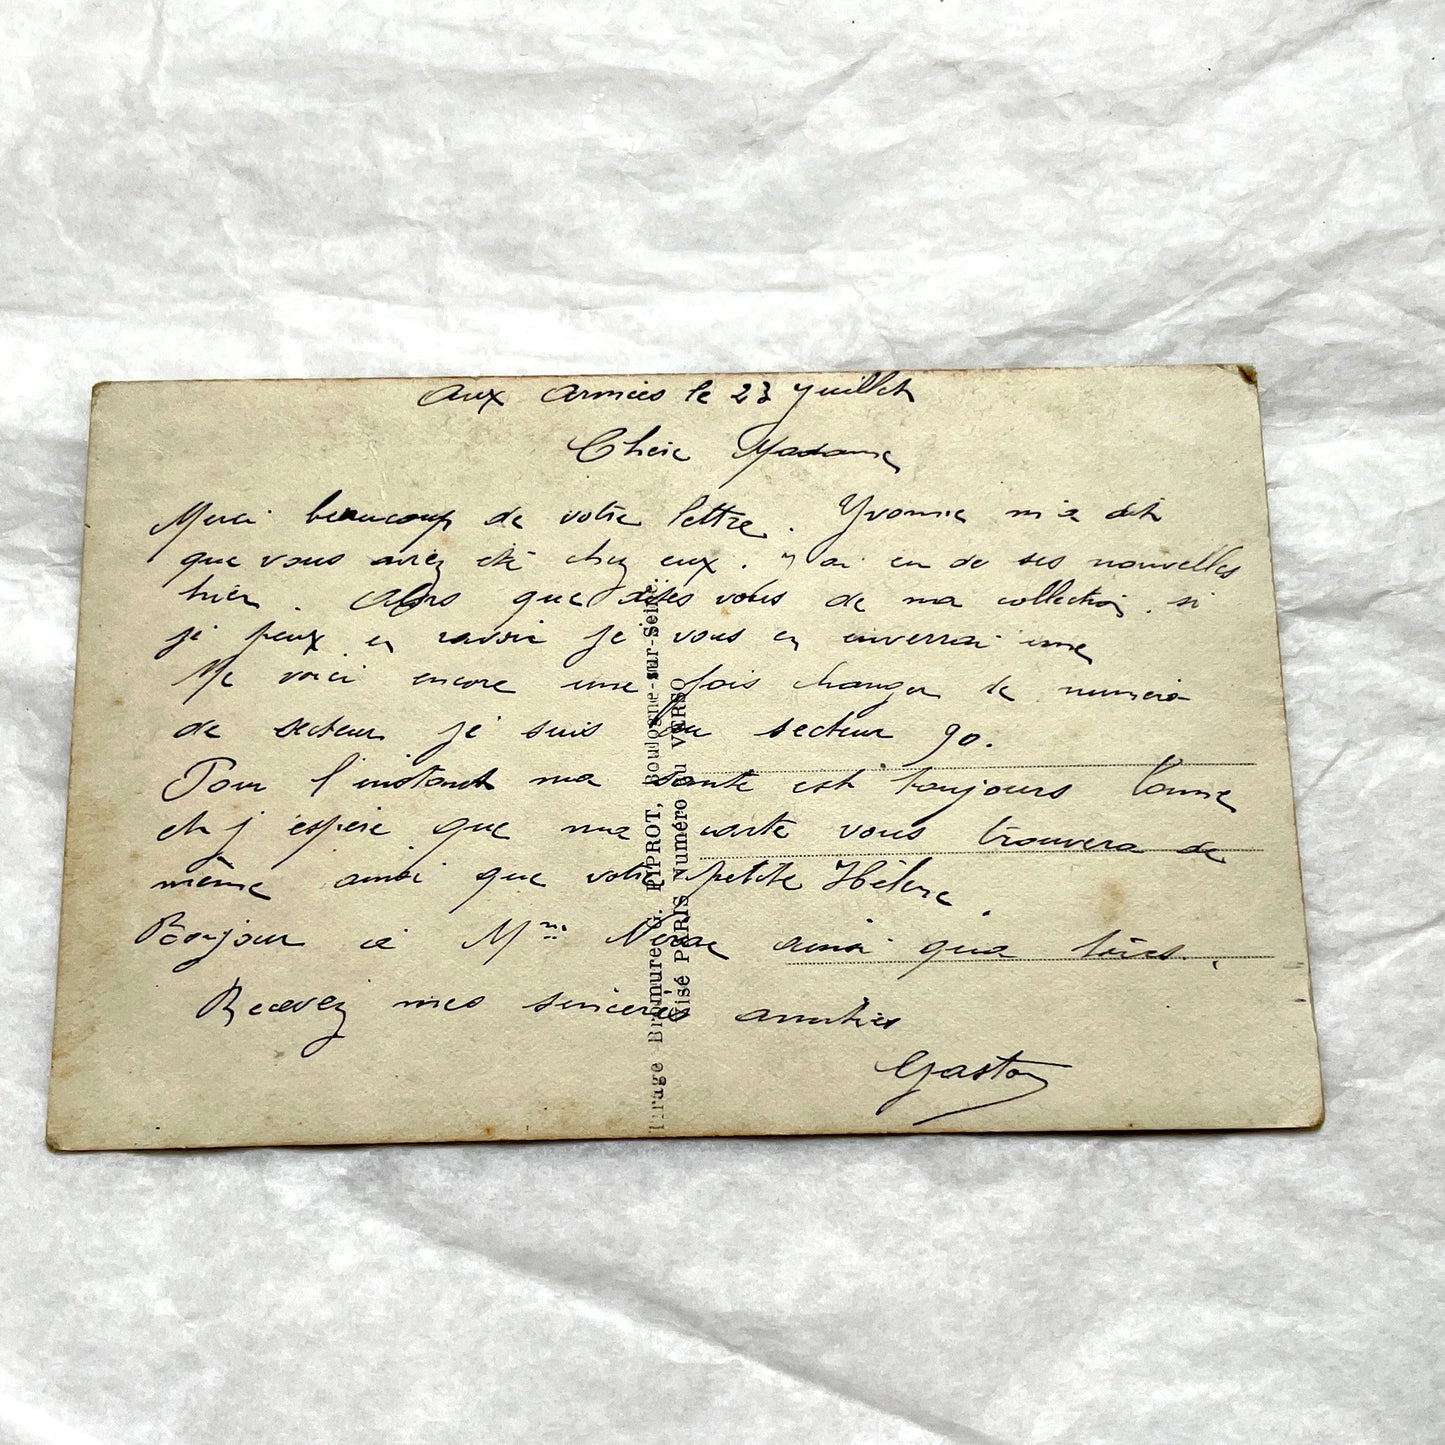 Aux Armées le 23 Juillet
Chère Madame
Merci beaucoup de votre lettre. Yvonne m'a dit
que vous aviez été chez eux. J'ai eu de ses nouvelles
hier. Alors que dites vous de ma collection, si
je peux en avoir je vous en enverrai une
Me voici encore une fois changer de numéro
de secteur je suis au secteur 90.
Pour l'instant ma santé est toujours bonne
et j'espère que ma carte vous trouvera de
même ainsi que votre petite Hélène.
Bonjour à Mme ainsi qua
Recevez mes sincères amitiés
Gaston
Tirage Bromure G. PIPROT, Boulogne-sur-Seine.
Visé PARIS Numéro au VERSO